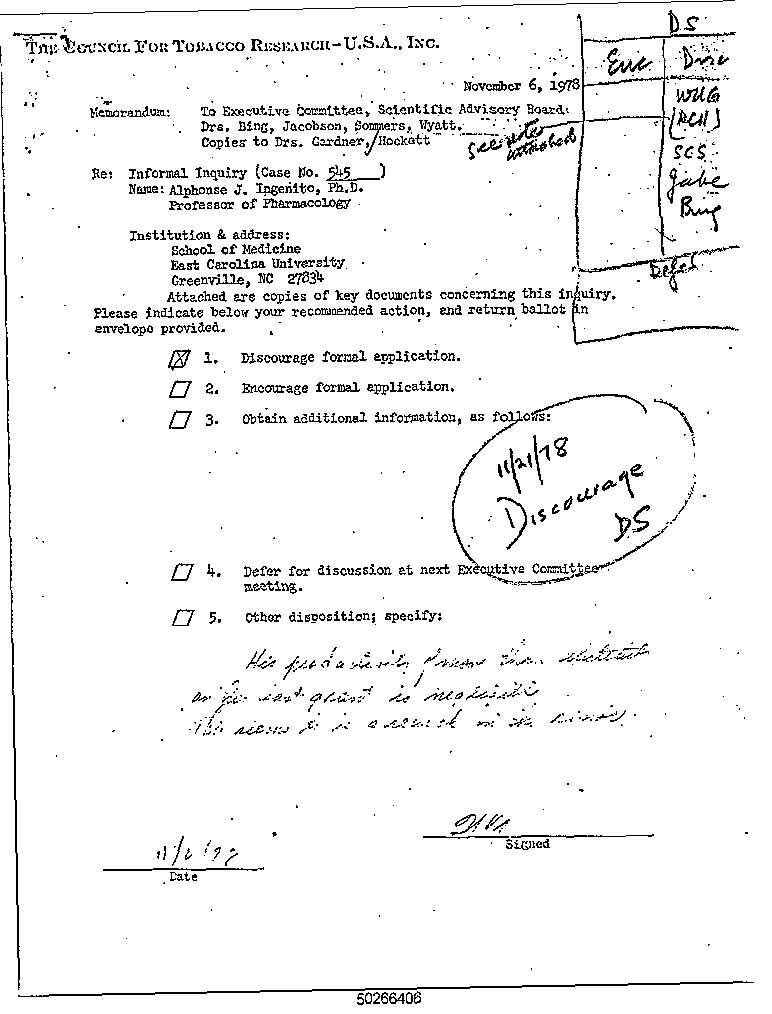 THE COUNCIL FOR TOBACCO RESEARCH-U.S.A., INC.
DS
Enc Disc
WUG
(RCH)
SCS
Jake
Bing
Defer
November 6, 1978
Memorandum: To Executive Committee, Scientific Advisory Board:
Drs. Bing, Jacobson, Sommers, Wyatt.
Copies to Drs. Gardner, Hockett
see note
attached
Re: Informal Inquiry (Case No. 545 )
Name: Alphonse J. Ingenito, Ph.D.
Professor of Pharmacology
Institution & address:
School of Medicine
East Carolina University
Greenville, NC 27834
Attached are copies of key documents concerning this inquiry.
Please indicate below your recommended action, and return ballot in
envelope provided.
1. Discourage formal application.
2. Encourage formal application.
3. Obtain additional information, as follows:
11/21/78
Discourage
DS
4. Defer for discussion at next Executive Committee
meeting.
5. Other disposition; specify:
His productivity from
grant is negligible
in the
Signed
Date
50266406